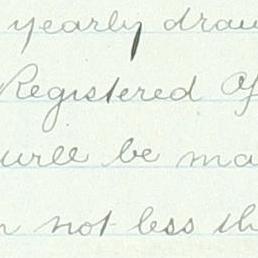 yearly draw
Registered Of
will be ma
not less th